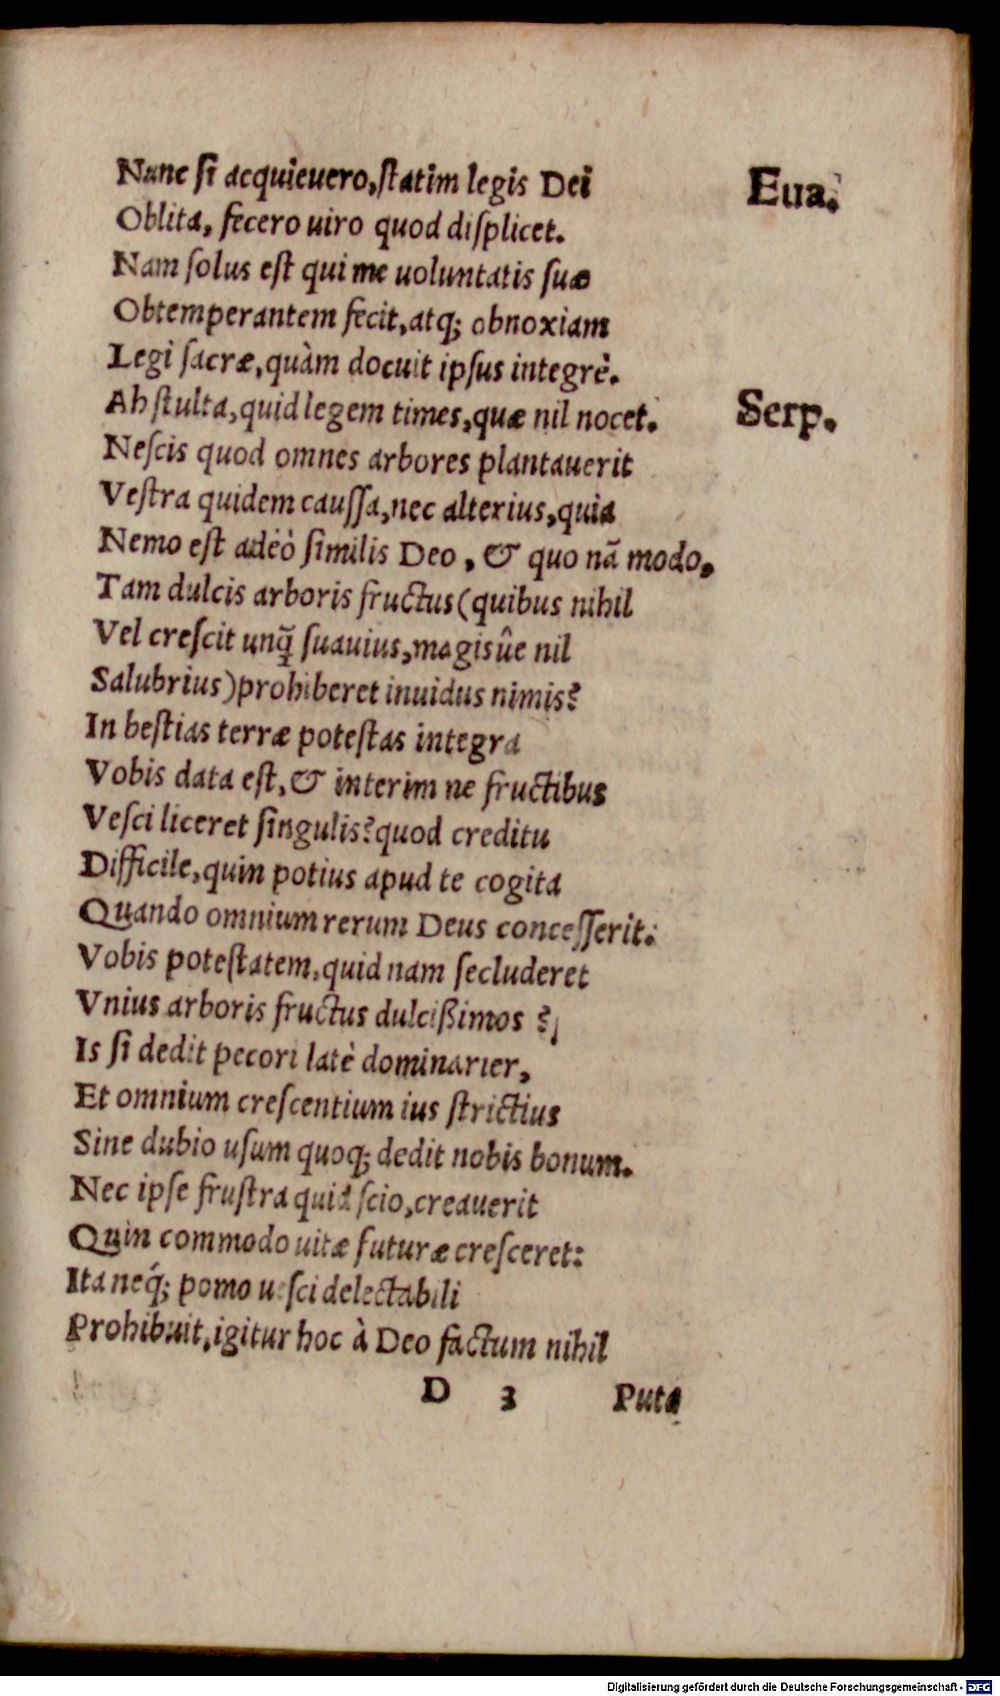 Nunc ſi acquieuero,ſtatim legis Dei
Eua.
Oblita, fecero uiro quod diſplicet.
Nam ſolus eſt qui me uoluntatis ſuæ
Obtemperantem fecit,atq; obnoxiam
Legi ſacræ,quàm docuit ipſus integrè.
Ah ſtulta,quid legem times,quæ nil nocet.
Serp.
Neſcis quod omnes arbores plantauerit
Veſtra quidem cauſſa,nec alterius,quia
Nemo eſt adeò ſimilis Deo, & quo nã modo,
Tam dulcis arboris fructus(quibus nihil
Vel creſcit unq̃ ſuauius,magisûe nil
Salubrius)prohiberet inuidus nimis?
In beſtias terræ poteſtas integra
Vobis data eſt,& interim ne fructibus
Veſci liceret ſingulis?quod creditu
Difficile,quin potius apud te cogita
Quando omnium rerum Deus conceſſerit:
Vobis poteſtatem,quid nam ſecluderet
Vnius arboris fructus dulcißimos ?
Is ſi dedit pecori latè dominarier,
Et omnium creſcentium ius ſtrictius
Sine dubio uſum quoq; dedit nobis bonum.
Nec ipſe fruſtra quid ſcio,creauerit
Quin commodo uitæ futuræ creſceret:
Ita neq́; pomo ueſci delectabili
Prohibuit,igitur hoc à Deo factum nihil
D 3 Puta
Digitalisierung gefördert durch die Deutsche Forschungsgemeinschaft - DFG